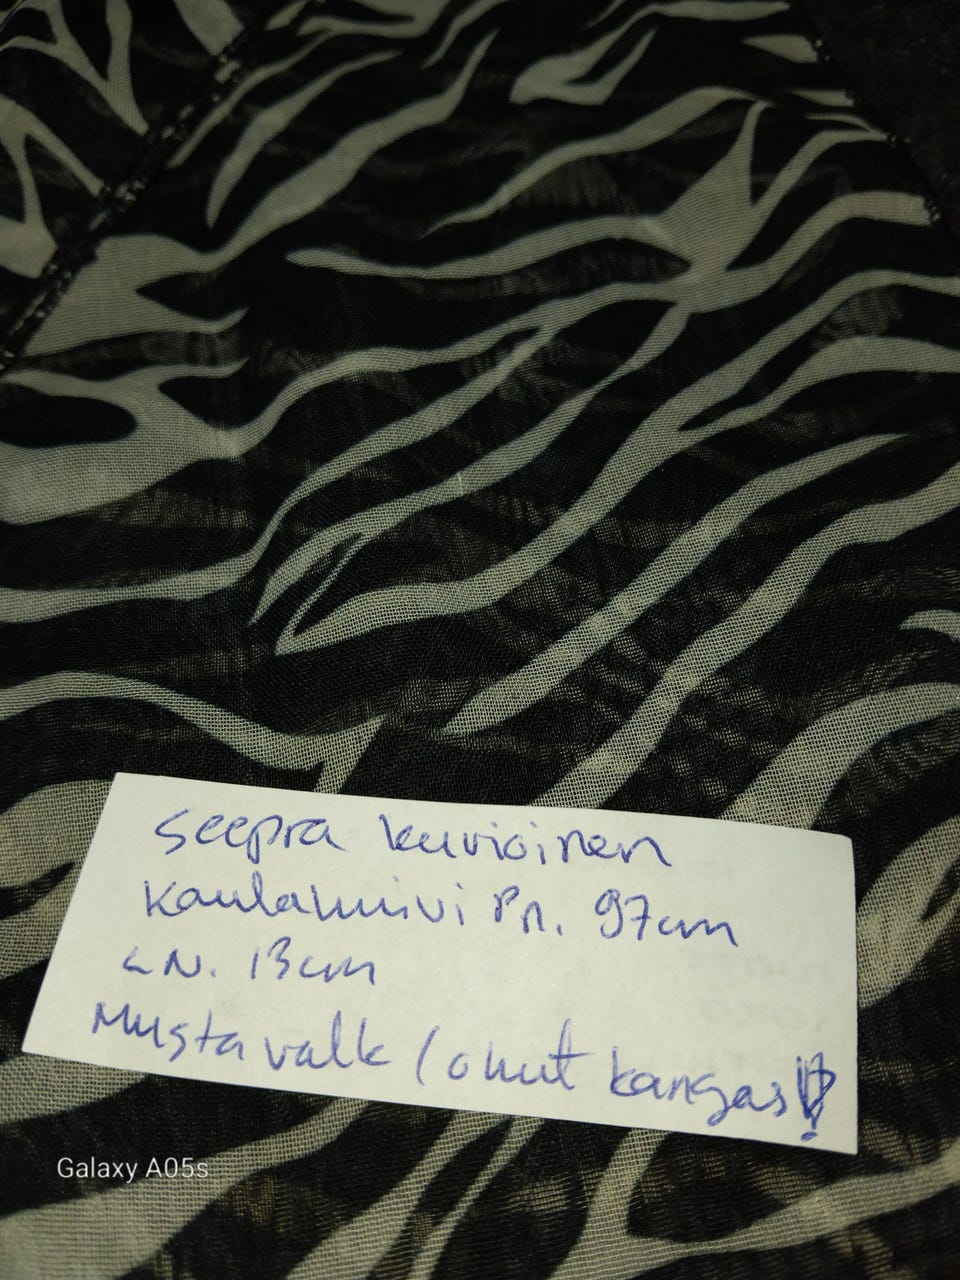 Seepra kuvioinen
Kaulahuivi Pn. 97cm
LN. 13cm
Musta valk / ohut kangas!
Galaxy A05s